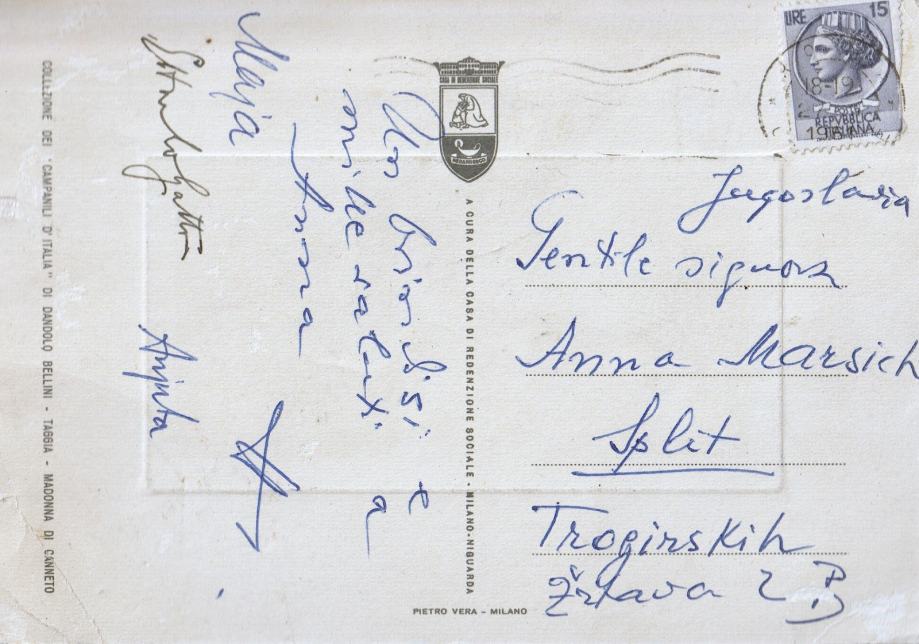 LIRE 15
POSTE
REPUBBLICA
ITALIANA
18-19
CASA DI REDENZIONE SOCIALE
Jugoslavia
Gentile signora
Anna Marsich
Split
Trogirskih
Žrtava 2 B
mille saluti a
Anna
Maja
Anjuta
A CURA DELLA CASA DI REDENZIONE SOCIALE - MILANO-NIGUARDA
PIETRO VERA - MILANO
COLLEZIONE DEI "CAMPANILI D'ITALIA" DI DANDOLO BELLINI - TAGGIA - MADONNA DI CANNETO